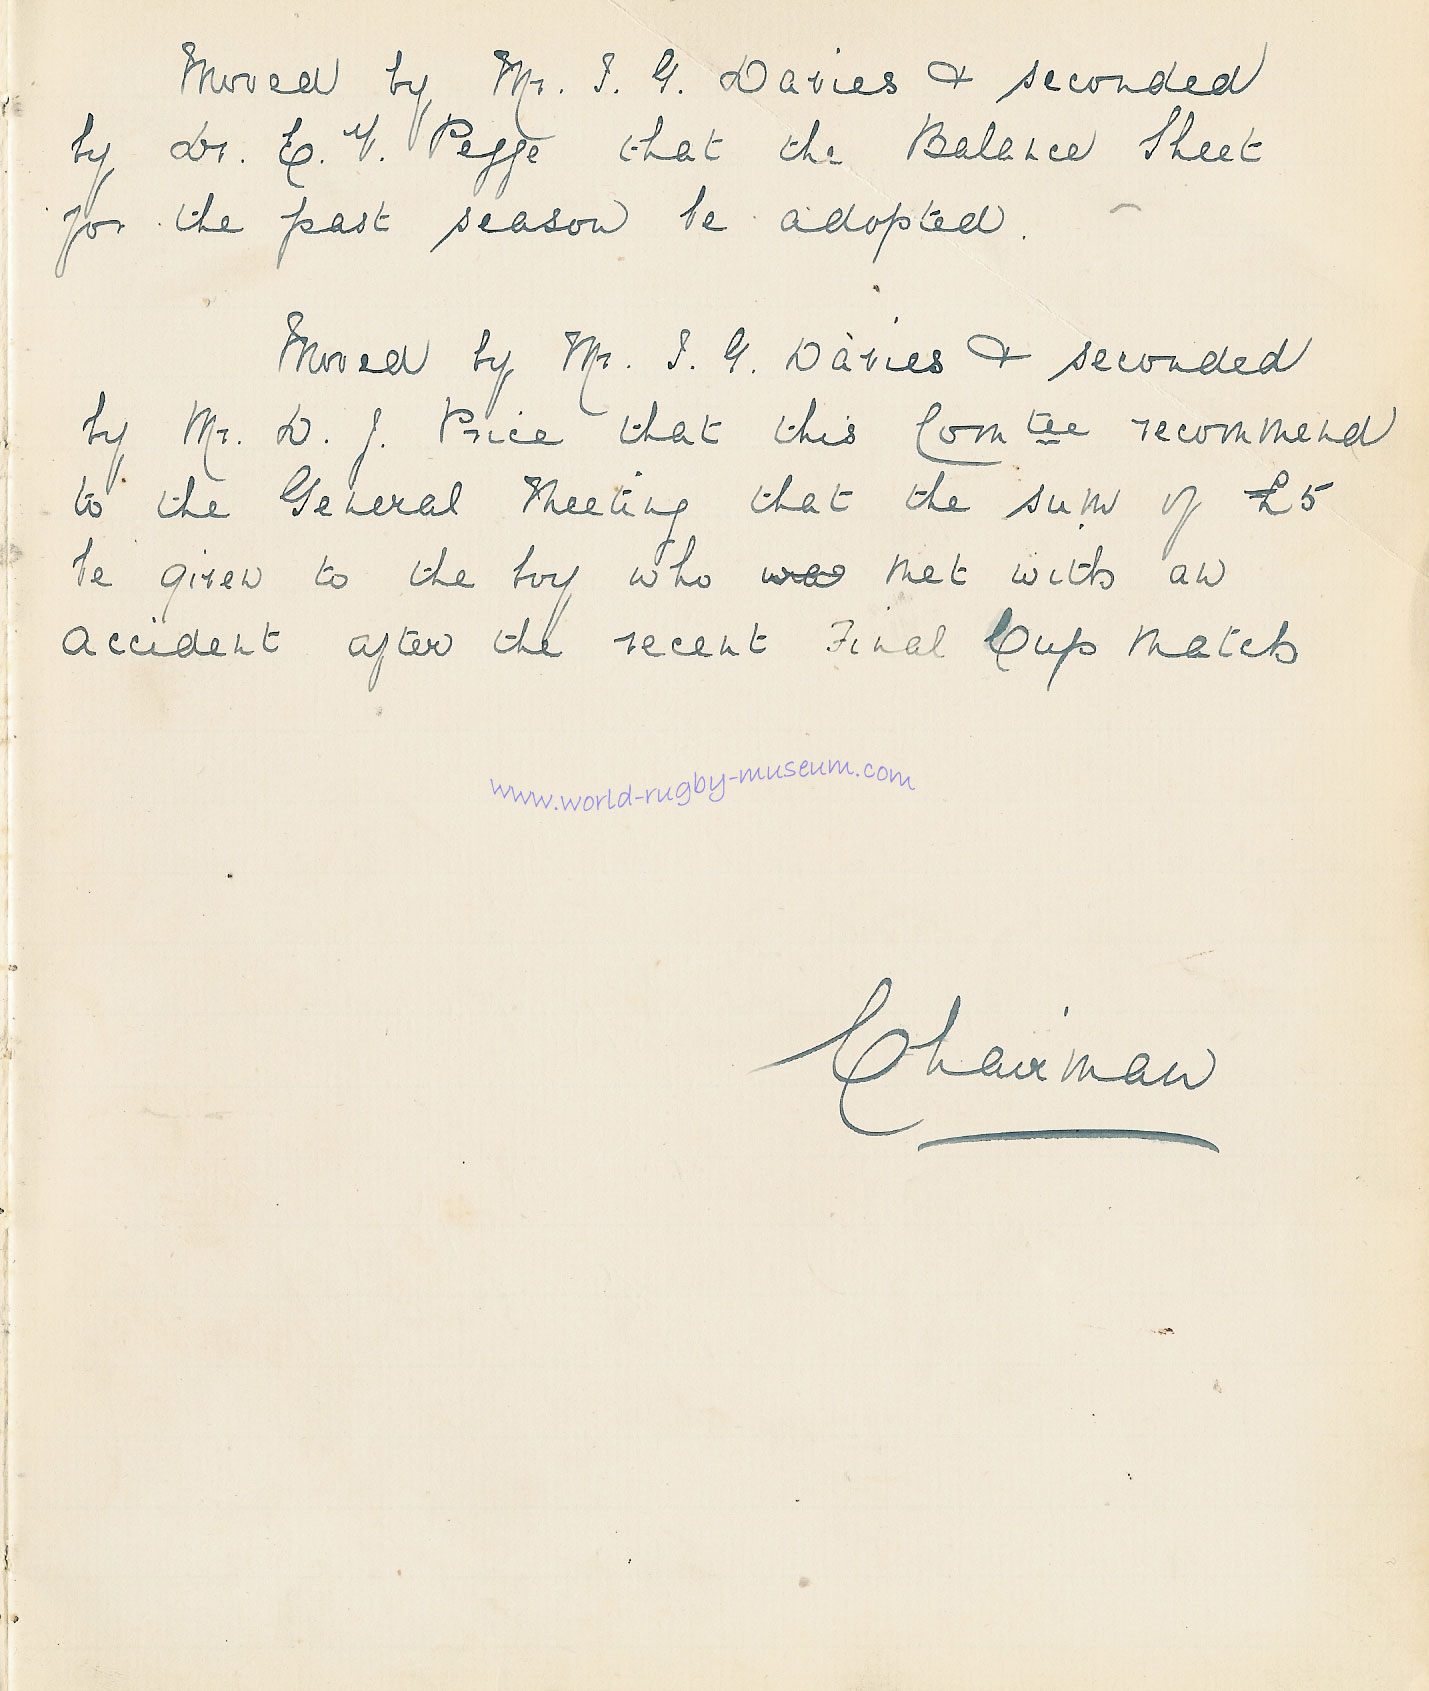 Moved by Mr. I. G. Davies & seconded
by Dr. E. V. Pegge that the Balance Sheet
for the past season be adopted.
Moved by Mr. I. G. Davies & seconded
by Mr. D. J. Price that this Comtee recommend
to the General Meeting that the sum of £5
be given to the boy who was met with an
accident after the recent Final Cup Match
www.world-rugby-museum.com
Chairman